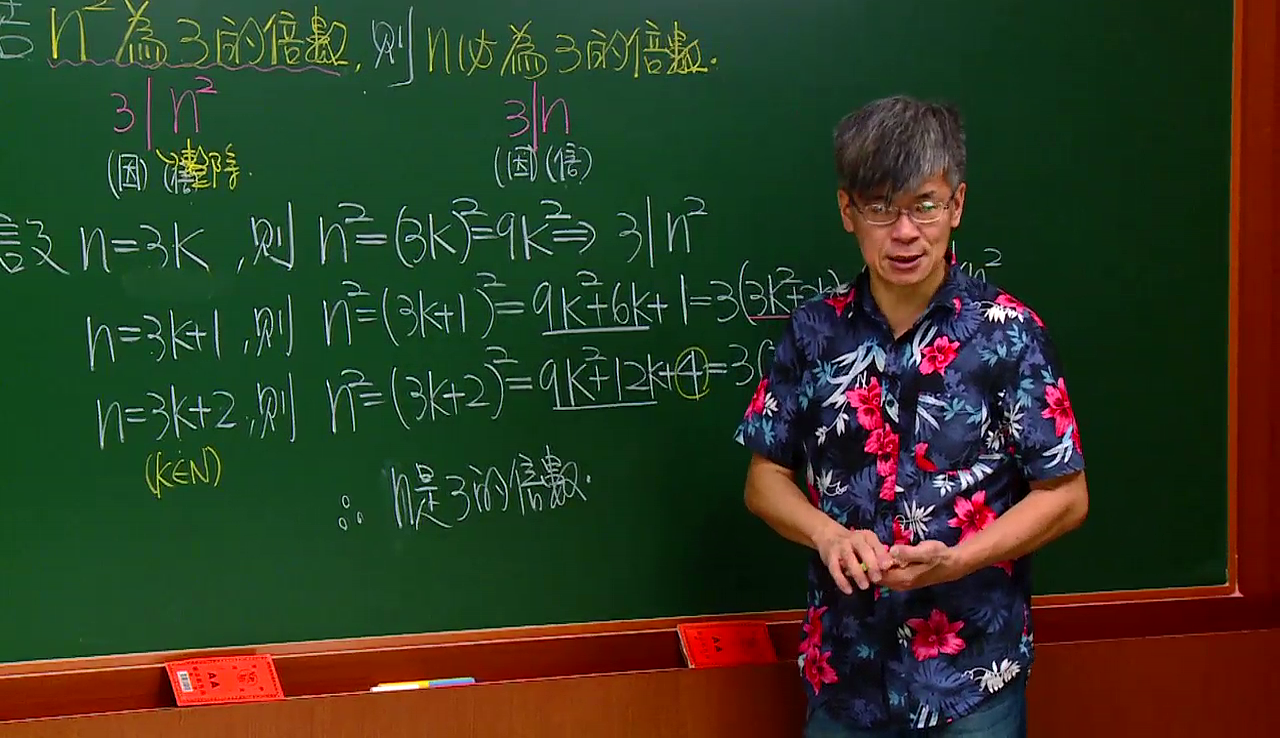 n²為3的倍數,則n必為3的倍數.
3|n² 3|n
(因) 整除. (因)(倍)
設 n=3k,則 n²=(3k)²=9k²⇒ 3|n²
n=3k+1,則 n²=(3k+1)²=9k²+6k+1=3(3k²+2k) n²
n=3k+2,則 n²=(3k+2)²=9k²+12k+4=3(
(k∈N)
∴ n是3的倍數.
AA
AA